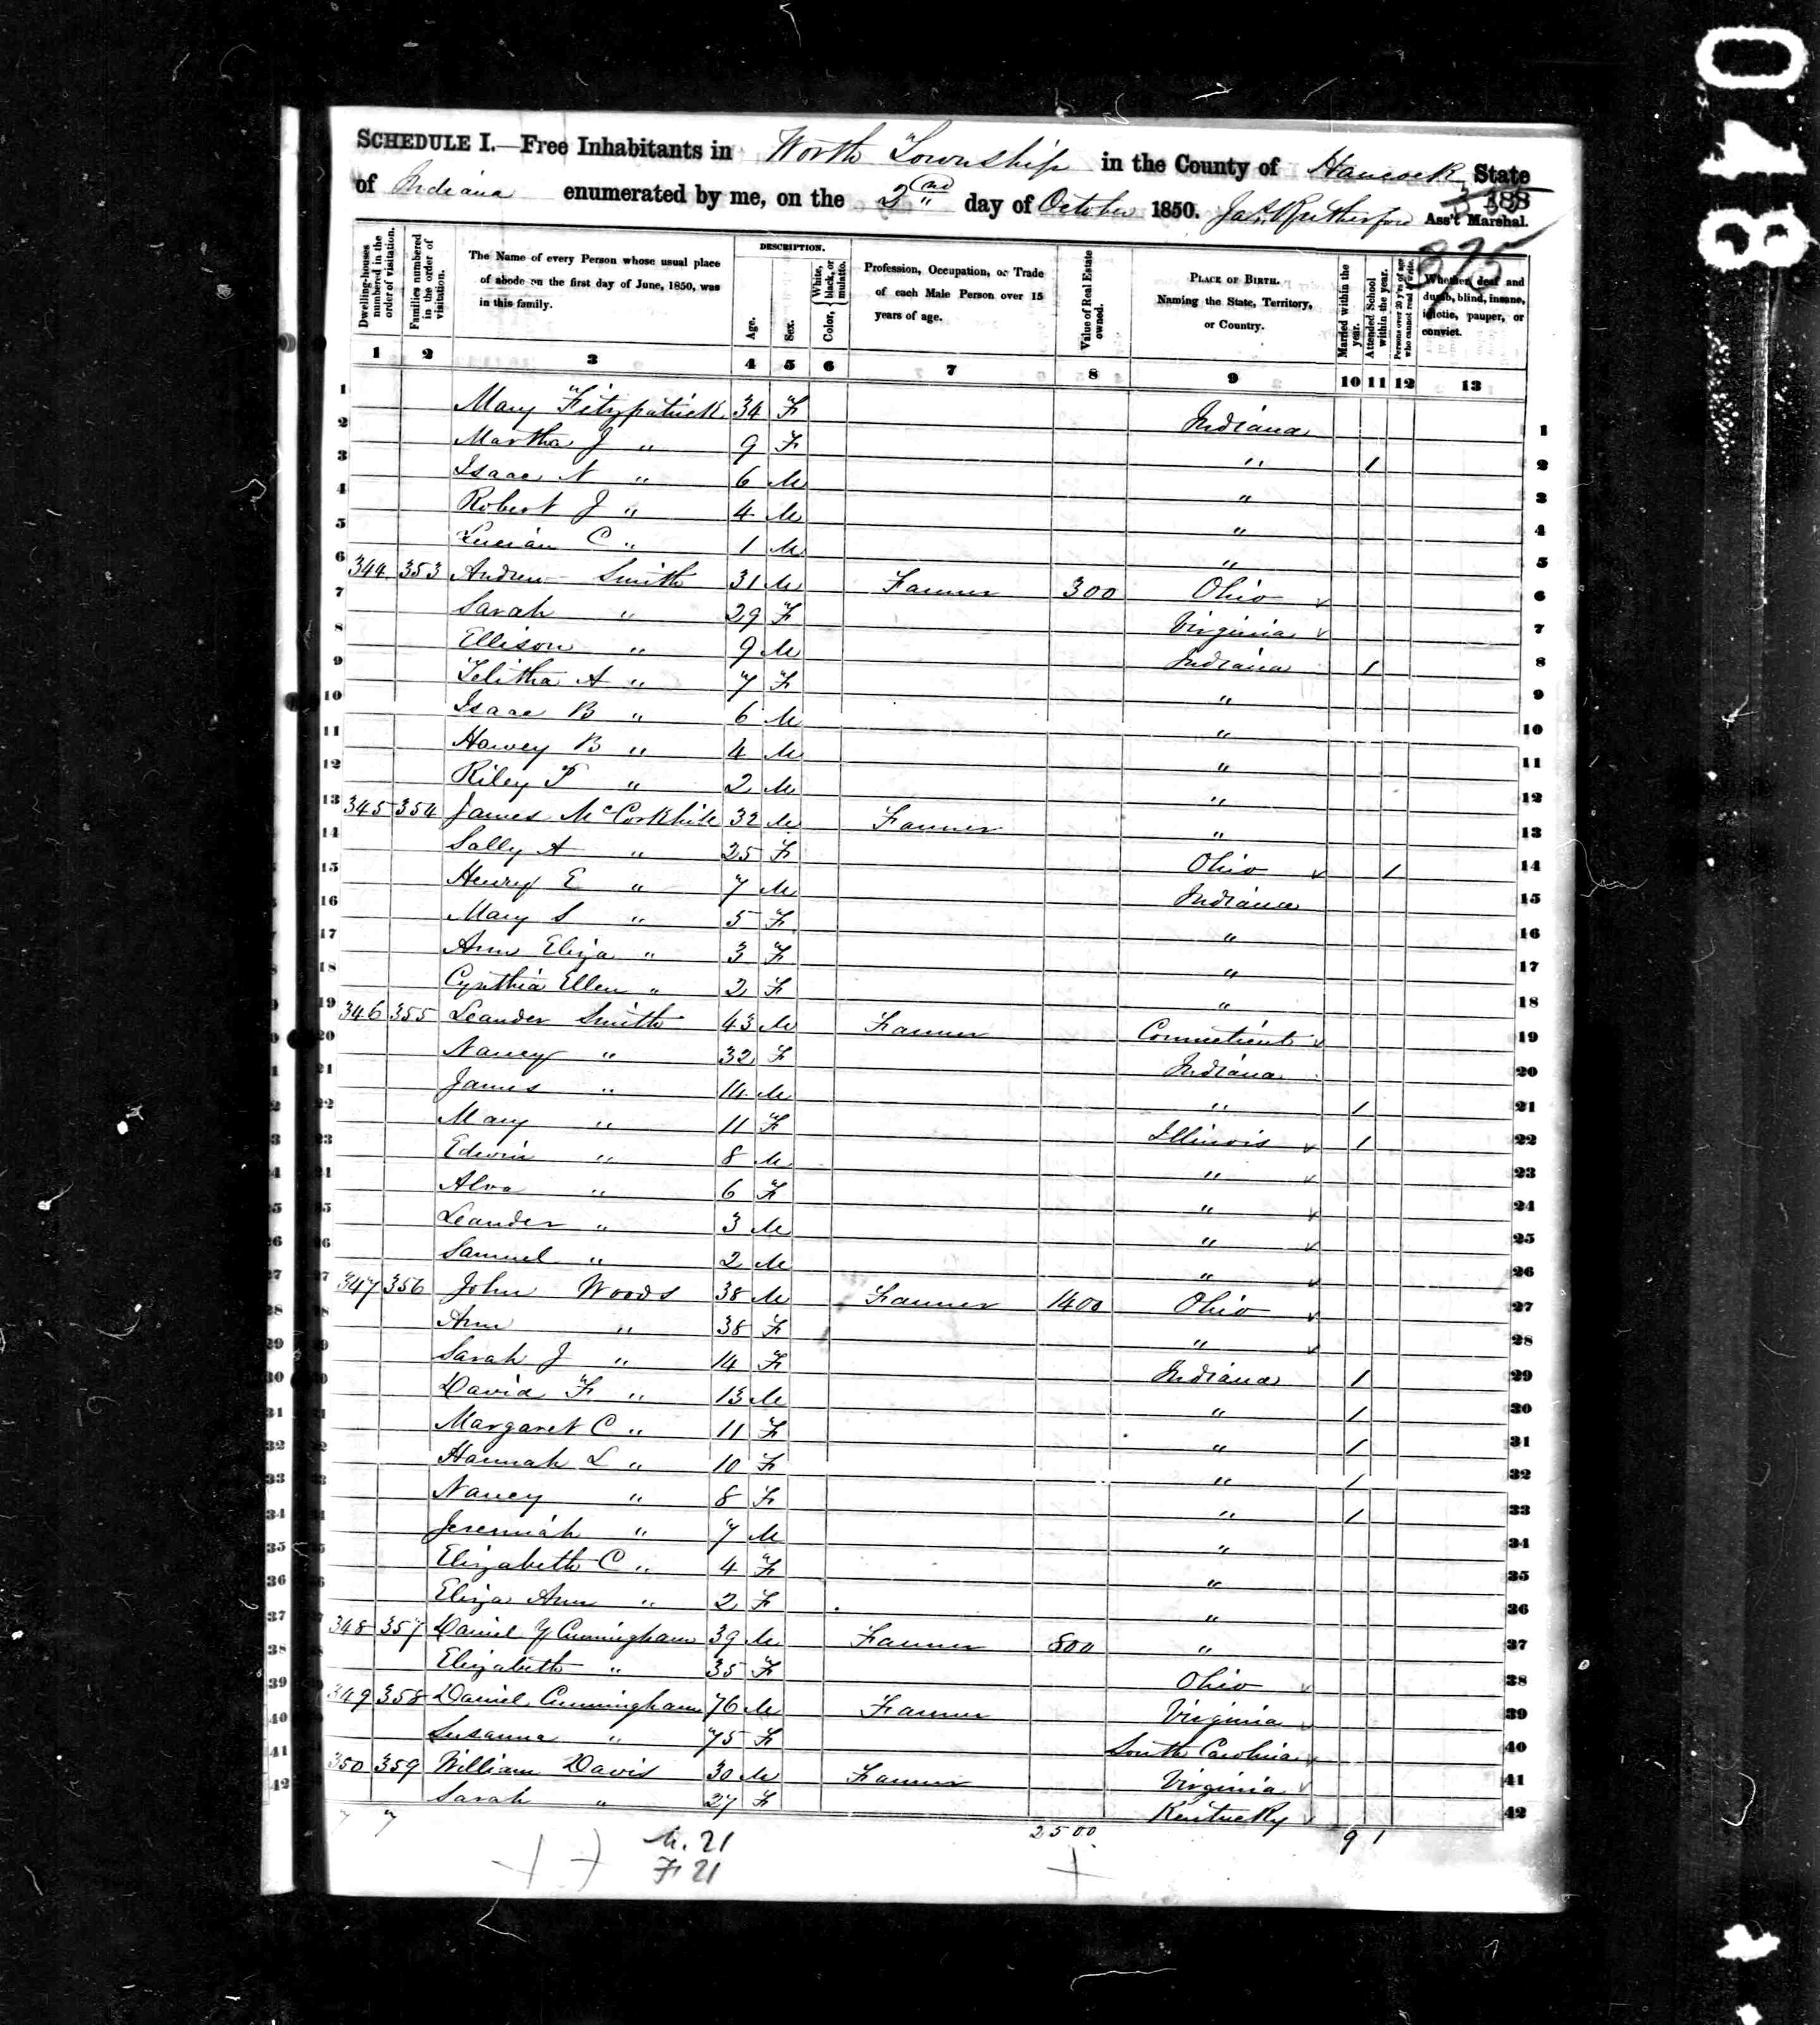 SCHEDULE I.—Free Inhabitants in Worth Township in the County of Hancock State
of Indiana enumerated by me, on the 2nd day of October 1850. Jas. Rutherford Ass't Marshal.
188
375
0418
Dwelling-houses numbered in the order of visitation. Families numbered in the order of visitation. The Name of every Person whose usual place of abode on the first day of June, 1850, was in this family. DESCRIPTION. Age. Sex. Color, {White, black, or mulatto. Profession, Occupation, or Trade of each Male Person over 15 years of age. Value of Real Estate owned. PLACE OF BIRTH. Naming the State, Territory, or Country. Married within the year. Attended School within the year. Persons over 20 y'rs of age who cannot read & write. Whether deaf and dumb, blind, insane, idiotic, pauper, or convict.
1 2 3 4 5 6 7 8 9 10 11 12 13
1 Mary Fitzpatrick 34 F Indiana 1
2 Martha J " 9 F " 1 2
3 Isaac N " 6 M " 3
4 Robert J " 4 M " 4
5 Lucian C " 1 M " 5
6 344 353 Andrew Smith 31 M Farmer 300 Ohio 6
7 Sarah " 29 F Virginia 7
8 Ellison " 9 M Indiana 1 8
9 Telitha A " 7 F " 9
10 Isaac B " 6 M " 10
11 Harvey B " 4 M " 11
12 Riley T " 2 M " 12
13 345 354 James McCorkhile 32 M Farmer " 13
14 Sally A " 25 F Ohio 1 14
15 Henry E " 7 M Indiana 15
16 Mary S " 5 F " 16
17 Ann Eliza " 3 F " 17
18 Cynthia Ellen " 2 F " 18
19 346 355 Leander Smith 43 M Farmer Connecticut 19
20 Nancy " 32 F Indiana 20
21 James " 14 M " 1 21
22 Mary " 11 F Illinois 1 22
23 Edwin " 8 M " 23
24 Alva " 6 F " 24
25 Leander " 3 M " 25
26 Samuel " 2 M " 26
27 347 356 John Woods 38 M Farmer 1400 Ohio 27
28 Ann " 38 F " 28
29 Sarah J " 14 F Indiana 1 29
30 David F " 13 M " 1 30
31 Margaret C " 11 F " 1 31
32 Hannah L " 10 F " 1 32
33 Nancy " 8 F " 1 33
34 Jeremiah " 7 M " 34
35 Elizabeth C " 4 F " 35
36 Eliza Ann " 2 F " 36
37 348 357 Daniel Y Cunningham 39 M Farmer 800 " 37
38 Elizabeth " 35 F Ohio 38
39 349 358 Daniel Cunningham 76 M Farmer Virginia 39
40 Susanna " 75 F South Carolina 40
41 350 359 William Davis 30 M Farmer Virginia 41
42 Sarah " 27 F Kentucky 42
7 7 M. 21 2500 9 1
F 21